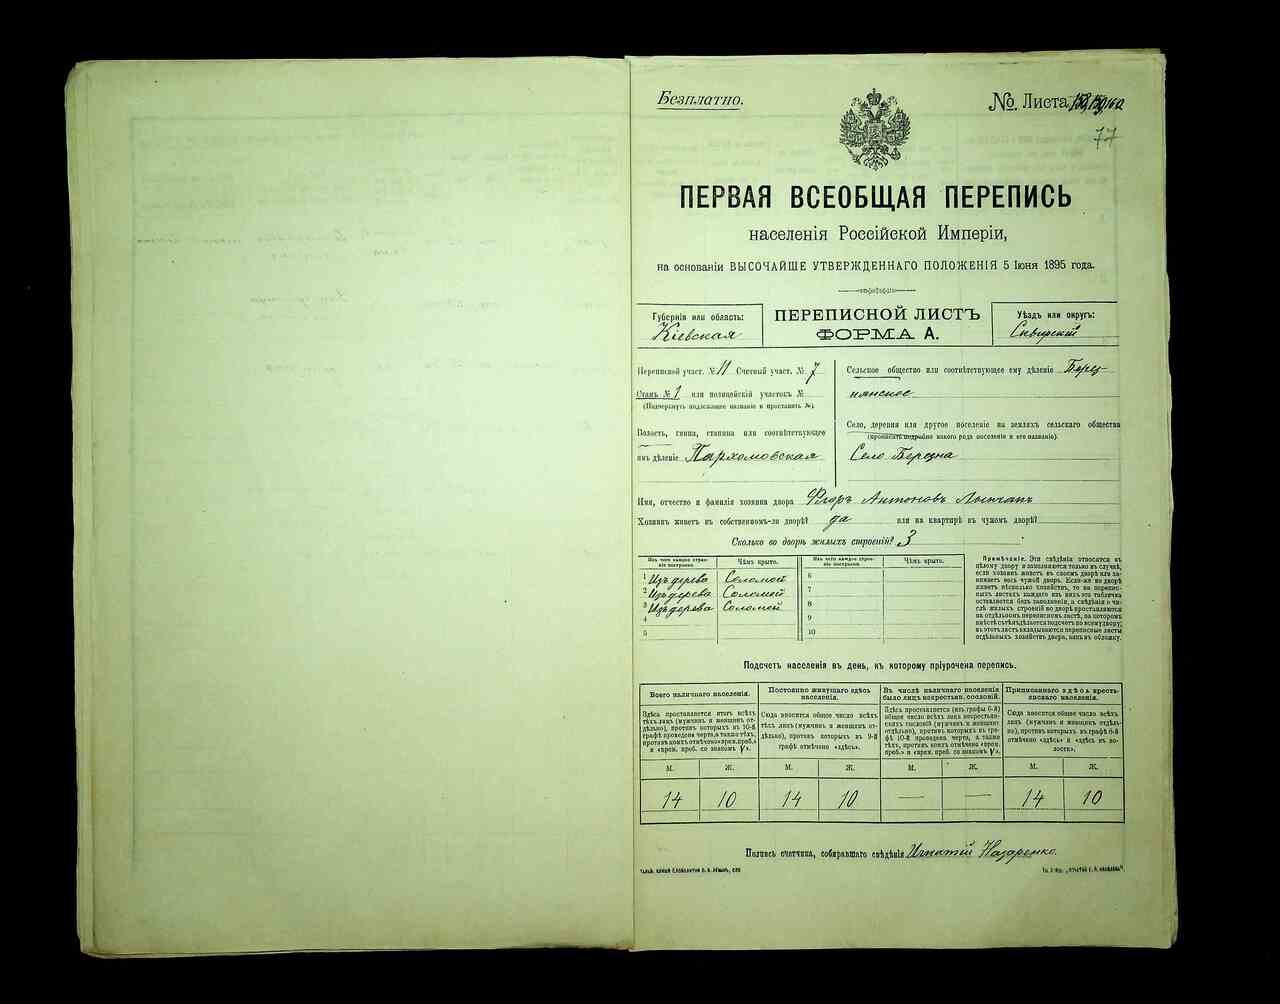 Безплатно.
№. Листа
77
ПЕРВАЯ ВСЕОБЩАЯ ПЕРЕПИСЬ
населенія Россійской Имперіи,
на основаніи ВЫСОЧАЙШЕ УТВЕРЖДЕННАГО ПОЛОЖЕНІЯ 5 Іюня 1895 года.
Губернія или область:
Кіевская
ПЕРЕПИСНОЙ ЛИСТЪ
ФОРМА А.
Уѣздъ или округъ:
Сквирскій
Переписной участ. № 11 Счетный участ. № 7
Станъ № 1 или полицейскій участокъ №
(Подчеркнуть подлежащее названіе и проставить №).
Волость, гмина, станица или соотвѣтствующее
имъ дѣленіе Пархомовская
Сельское общество или соотвѣтствующее ему дѣленіе Берез-
нянское
Село, деревня или другое поселеніе на земляхъ сельскаго общества
(прописать подробно какого рода поселеніе и его названіе).
Село Березна
Имя, отчество и фамилія хозяина двора Флоръ Антоновъ
Хозяинъ живетъ въ собственномъ-ли дворѣ? да или на квартирѣ въ чужомъ дворѣ?
Сколько во дворѣ жилыхъ строеній? 3
Изъ чего каждое строе-
ніе построено.
Чѣмъ крыто.
1 Изъ дерева Соломой
2 Изъ дерева Соломой
3 Изъ дерева Соломой
4
5
Изъ чего каждое строе-
ніе построено.
Чѣмъ крыто.
6
7
8
9
10
Примѣчаніе. Эти свѣдѣнія относятся къ
цѣлому двору и заполняются только въ случаѣ,
если хозяинъ живетъ въ своемъ дворѣ или за-
нимаетъ весь чужой дворъ. Если-же во дворѣ
живетъ нѣсколько хозяйствъ, то на перепис-
ныхъ листахъ каждаго изъ нихъ эта табличка
оставляется безъ заполненія, а свѣдѣнія о чи-
слѣ жилыхъ строеній во дворѣ проставляются
на отдѣльномъ переписномъ листѣ, на которомъ
вмѣстѣ съ тѣмъ дѣлается подсчетъ по всему двору;
въ этотъ листъ вкладываются переписные листы
отдѣльныхъ хозяйствъ двора, какъ въ обложку.
Подсчетъ населенія въ день, къ которому пріурочена перепись.
Всего наличнаго населенія.
Здѣсь проставляется итогъ всѣхъ
тѣхъ лицъ (мужчинъ и женщинъ от-
дѣльно), противъ которыхъ въ 10-й
графѣ проведена черта, а также тѣхъ,
противъ коихъ отмѣчено «врем. преб.»
и «врем. преб. со знакомъ V».
Постоянно живущаго здѣсь
населенія.
Сюда вносится общее число всѣхъ
тѣхъ лицъ (мужчинъ и женщинъ от-
дѣльно), противъ которыхъ въ 9-й
графѣ отмѣчено «здѣсь».
Въ числѣ наличнаго населенія
было лицъ некрестьян. сословій.
Здѣсь проставляется (изъ графы 6-й)
общее число всѣхъ лицъ некрестьян-
скихъ сословій (мужчинъ и женщинъ
отдѣльно), противъ которыхъ въ гра-
фѣ 10-й проведена черта, а также
тѣхъ, противъ коихъ отмѣчено «врем.
преб.» и «врем. преб. со знакомъ V».
Приписаннаго здѣсь кресть-
янскаго населенія.
Сюда вносится общее число всѣхъ
лицъ (мужчинъ и женщинъ отдѣль-
но), противъ которыхъ въ графѣ 8-й
отмѣчено «здѣсь» и «здѣсь въ во-
лости».
М. Ж. М. Ж. М. Ж. М. Ж.
14 10 14 10 — — 14 10
Подпись счетчика, собиравшаго свѣдѣнія Игнатій Назаренко.